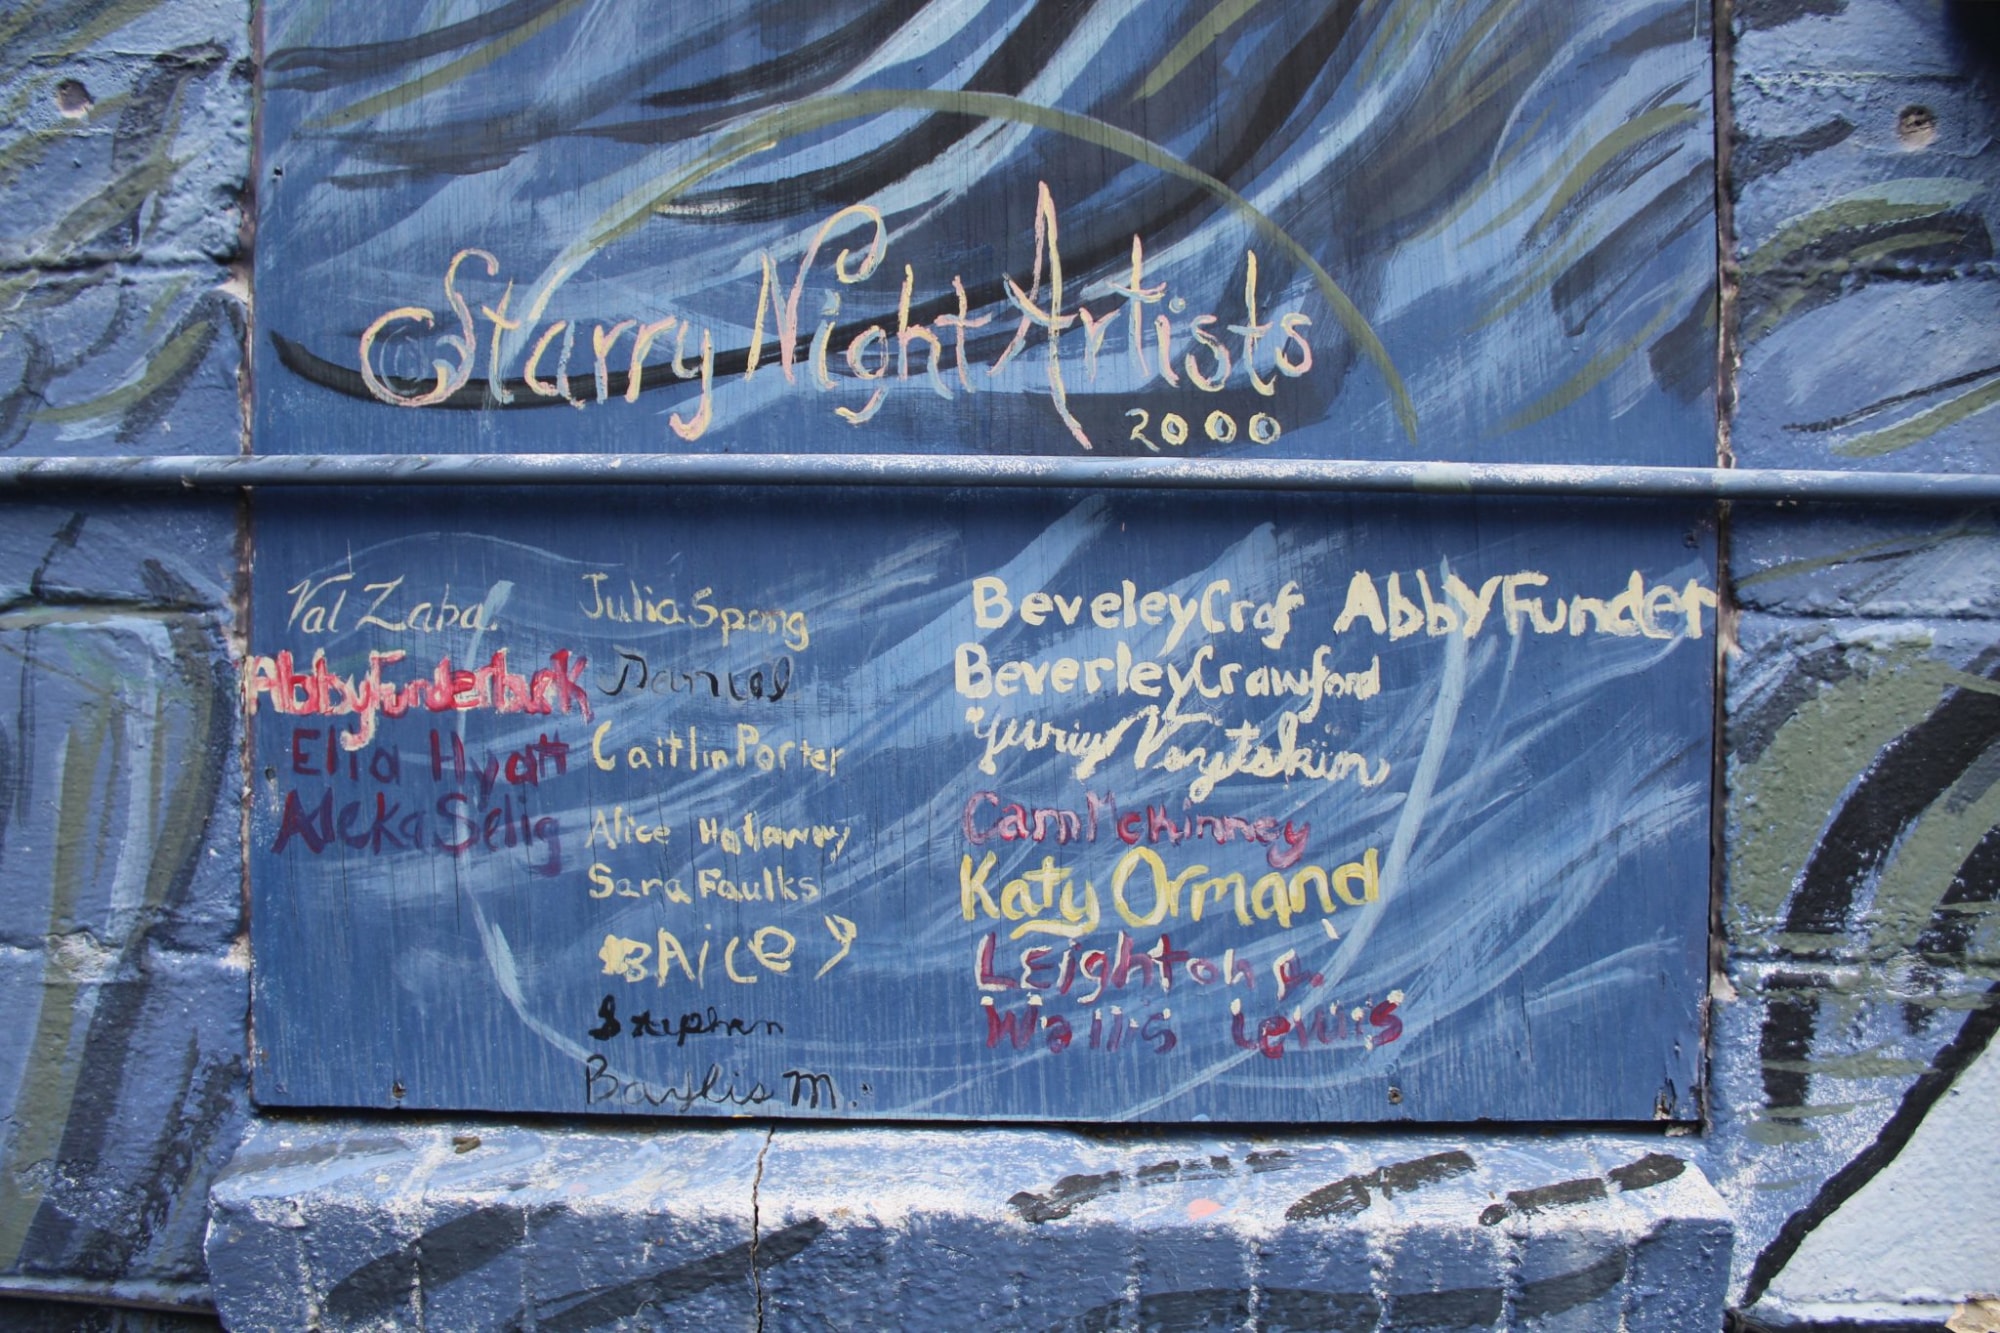 Starry Night Artists
2000
Val Zaba.
Abby Funderburk
Ella Hyatt
Aleka Selig
Julia Spong
Daniel
Caitlin Porter
Alice Holloway
Sara Faulks
BAiCey
Stephen
Baylis M.
Beveley Crof Abby Funder
Beverley Crawford
Yuriy
Cam McKinney
Katy Ormand
Leighton
Wallis Lewis